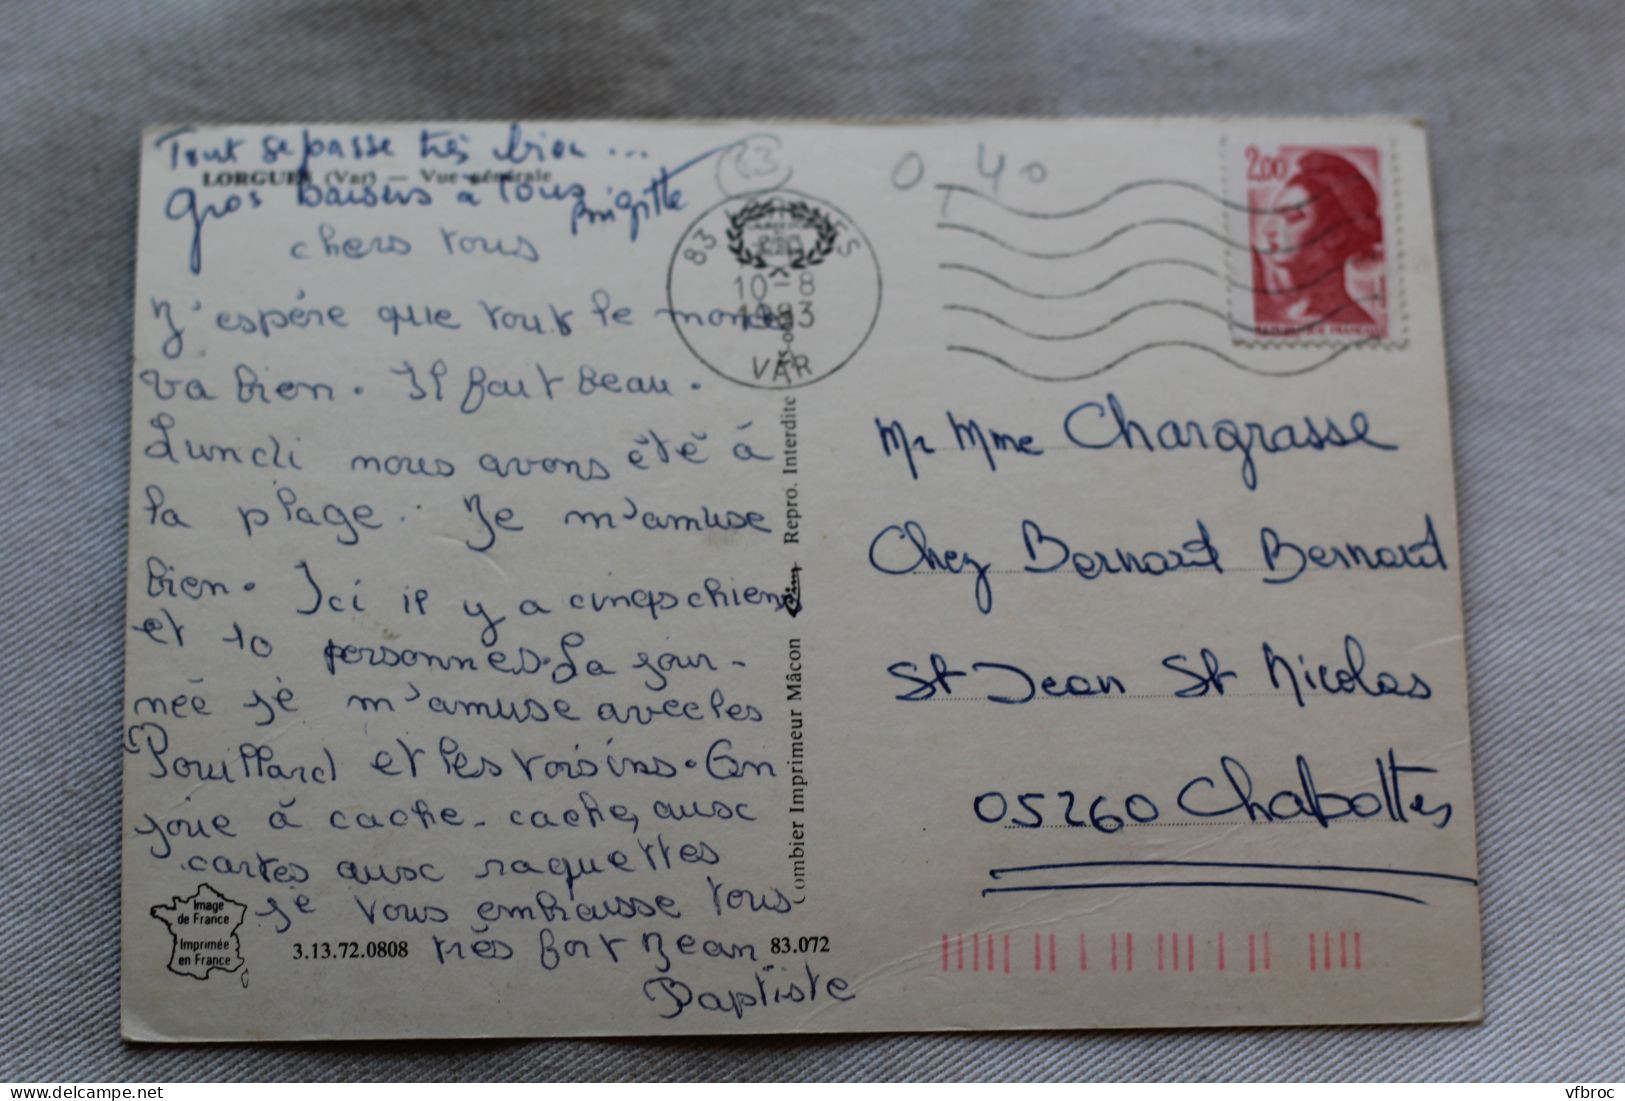 Tout se passe très bien ...
LORGUES (Var) — Vue générale
Gros baisers à tous
Brigitte
chers tous
J'espére que tout le monde
va bien. Il fait beau.
Lundi nous avons été à
la plage. Je m'amuse
bien. Ici il y a cinqs chiens
et 10 personnes. La jour-
née je m'amuse avec les
Pouillard et les voisins. On
joue à cache-cache, aux
cartes aux raquettes
je vous embrasse tous
très fort Jean
Baptiste
Image
de France
Imprimée
en France
3.13.72.0808
83.072
Combier Imprimeur Mâcon
Repro. Interdite
83
0 40
83 LORGUES
10-8
1983
VAR
2,00
RÉPUBLIQUE FRANÇAISE
Mr Mme Chargrasse
Chez Bernard Bernard
St Jean St Nicolas
05260 Chabottes
vfbroc